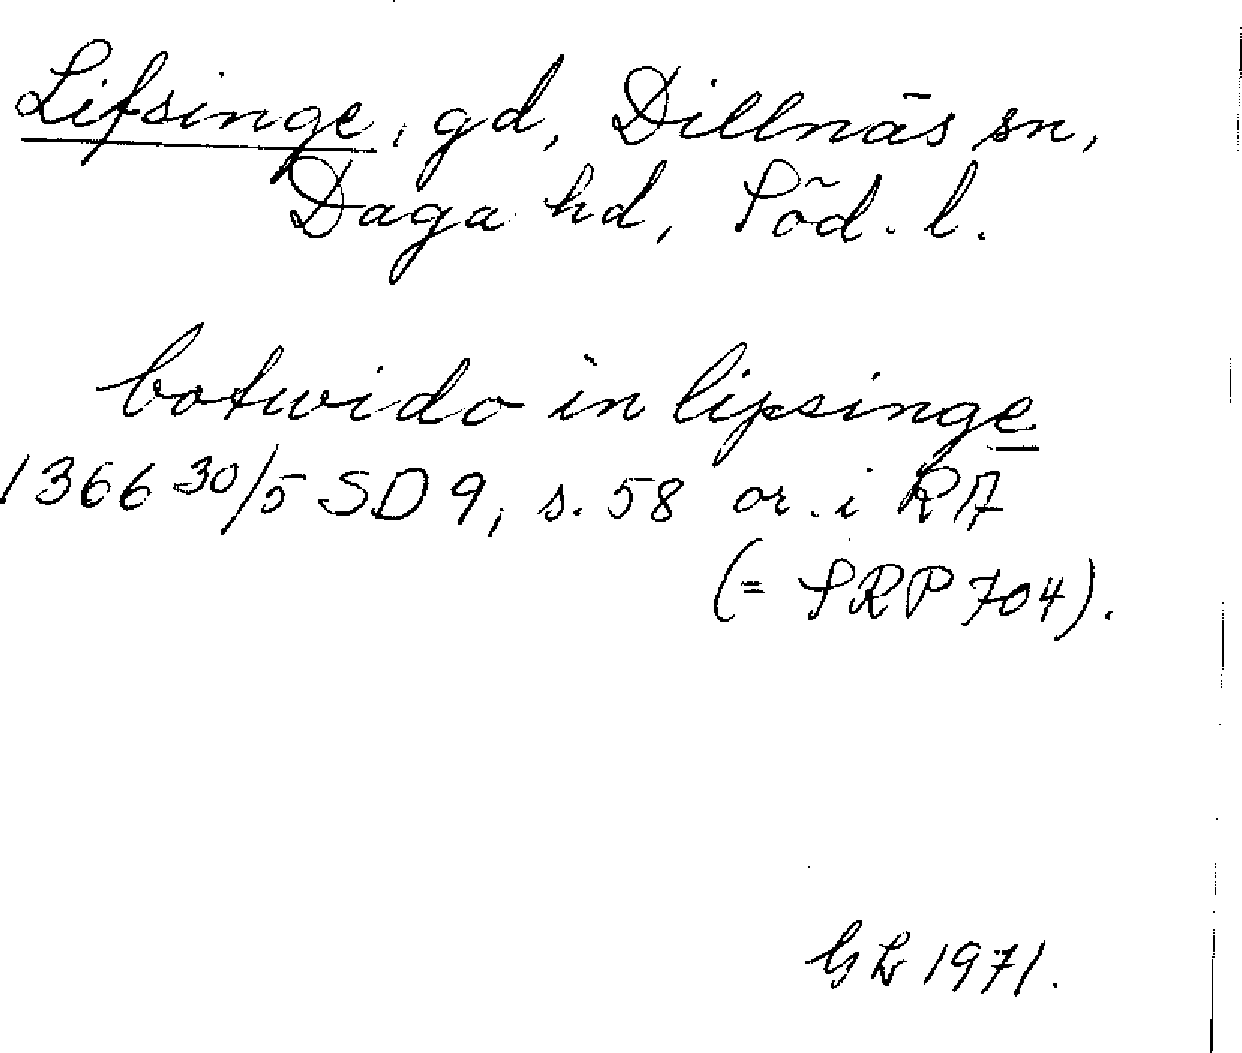 Lifsinge, gd, Dillnäs sn,
Daga hd, Söd. l.
botwido in lipsinge
1366 30/5 SD 9, s. 58 or. i RA
(= SRP 704).
GL 1971.